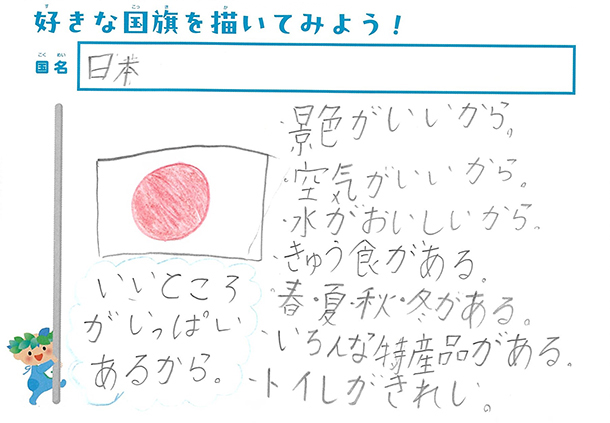 好きな国旗を描いてみよう！
国名
日本
・景色がいいから。
・空気がいいから。
・水がおいしいから。
・きゅう食がある。
・春・夏・秋・冬がある。
・いろんな特産品がある。
・トイレがきれい。
いいところ
がいっぱい
あるから。